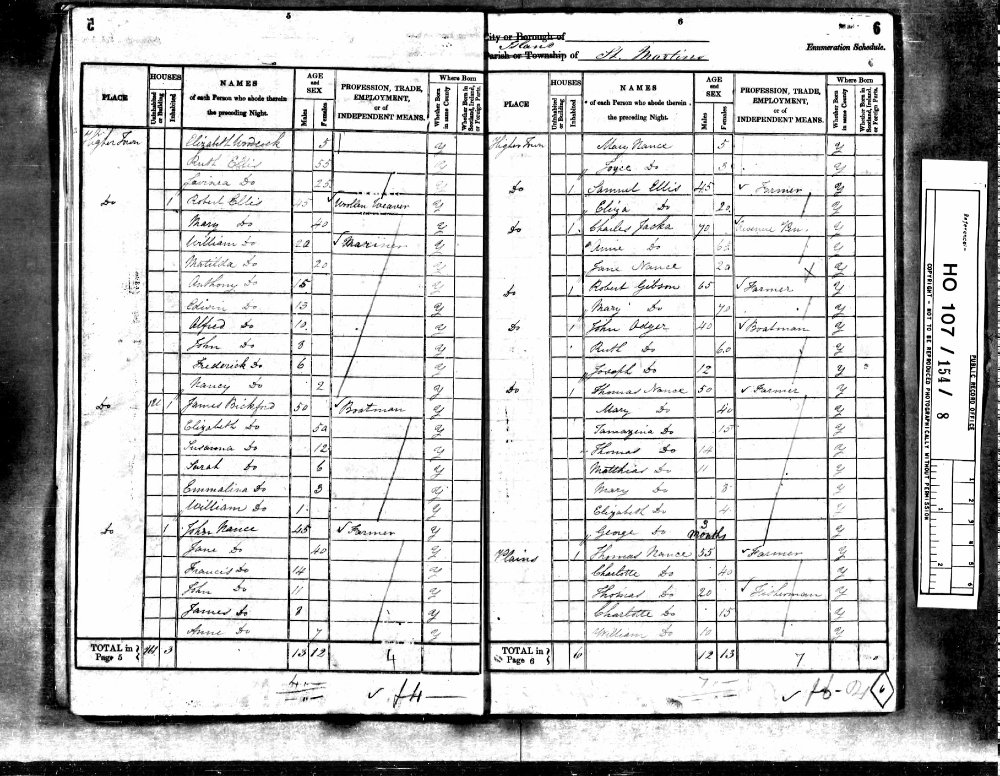 5
5
PLACE
HOUSES
Uninhabited or Building
Inhabited
NAMES
of each Person who abode therein
the preceding Night.
AGE
and
SEX
Males
Females
PROFESSION, TRADE,
EMPLOYMENT,
or of
INDEPENDENT MEANS.
Where Born
Whether Born in same County
Whether Born in Scotland, Ireland, or Foreign Parts.
Higher Town Elizabeth Woodcock 5 y
Ruth Ellis 55 y
Lavinia Do 25 y
Do 1 Robert Ellis 45 Woollen Weaver y
Mary Do 40 y
William Do 20 Mariner y
Matilda Do 20 y
Anthony Do 15 y
Edwin Do 13 y
Alfred Do 10 y
John Do 8 y
Frederick Do 6 y
Nancy Do 2 y
Do 1U 1 James Bickford 50 Boatman y
Elizabeth Do 50 y
Susanna Do 12 y
Sarah Do 6 y
Emmalina Do 3 y
William Do 1 y
Do 1 John Nance 45 Farmer y
Jane Do 40 y
Francis Do 14 y
John Do 11 y
James Do 8 y
Anne Do 7 y
TOTAL in Page 5 1U 3 13 12 4
6
6
City or Borough of
Island
Parish or Township of St. Martins
Enumeration Schedule.
PLACE
HOUSES
Uninhabited or Building
Inhabited
NAMES
of each Person who abode therein
the preceding Night.
AGE
and
SEX
Males
Females
PROFESSION, TRADE,
EMPLOYMENT,
or of
INDEPENDENT MEANS.
Where Born
Whether Born in same County
Whether Born in Scotland, Ireland, or Foreign Parts.
Higher Town Mary Nance 5 y
Joyce Do 3 y
Do 1 Samuel Ellis 45 Farmer y
Eliza Do 20 y
Do 1 Charles Jaska 70 Revenue Pen. y
Anne Do 65 y
Jane Nance 20 y
Do 1 Robert Gibson 65 Farmer y
Mary Do 70 y
Do 1 John Odger 40 Boatman y
Ruth Do 60 y
Joseph Do 12 y
Do 1 Thomas Nance 50 Farmer y
Mary Do 40 y
Tamazina Do 15 y
Thomas Do 14 y
Matthias Do 11 y
Mary Do 8 y
Elizabeth Do 4 y
George Do 3 months y
Plains 1 Thomas Nance 55 Farmer y
Charlotte Do 40 y
Thomas Do 20 Fisherman y
Charlotte Do 15 y
William Do 10 y
TOTAL in Page 6 6 12 13 7
6
Reference:-
HO 107 / 154 / 8
PUBLIC RECORD OFFICE
COPYRIGHT - NOT TO BE REPRODUCED PHOTOGRAPHICALLY WITHOUT PERMISSION